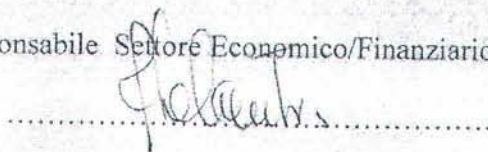 onsabile Settore Economico/Finanziario